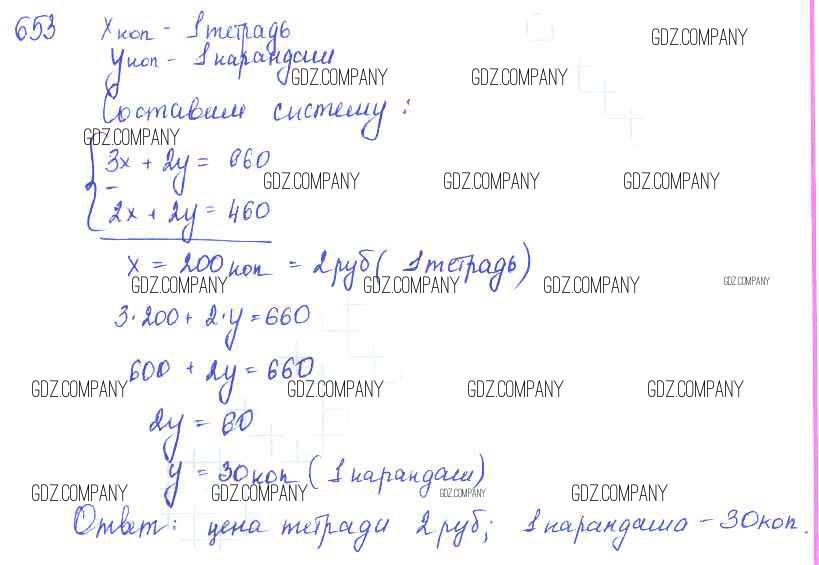 653 X коп - 1 тетрадь
GDZ.COMPANY
У коп - 1 карандаш
GDZ.COMPANY GDZ.COMPANY
Составим систему:
GDZ.COMPANY
3x + 2y = 660
GDZ.COMPANY GDZ.COMPANY GDZ.COMPANY
-
2x + 2y = 460
x = 200 коп = 2 руб ( 1 тетрадь)
GDZ.COMPANY GDZ.COMPANY GDZ.COMPANY GDZ.COMPANY
3·200 + 2·y = 660
600 + 2y = 660
GDZ.COMPANY GDZ.COMPANY GDZ.COMPANY GDZ.COMPANY
2y = 60
y = 30 коп ( 1 карандаш)
GDZ.COMPANY GDZ.COMPANY GDZ.COMPANY GDZ.COMPANY
Ответ: цена тетради 2 руб; 1 карандаша - 30 коп.